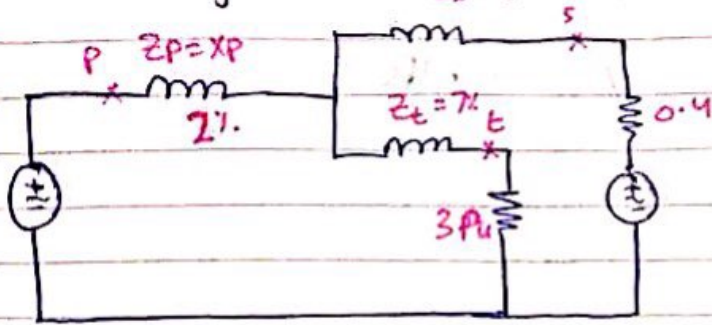 s
P Zp=Xp
2%.
Zt = 7%
t
0.4
3Pu